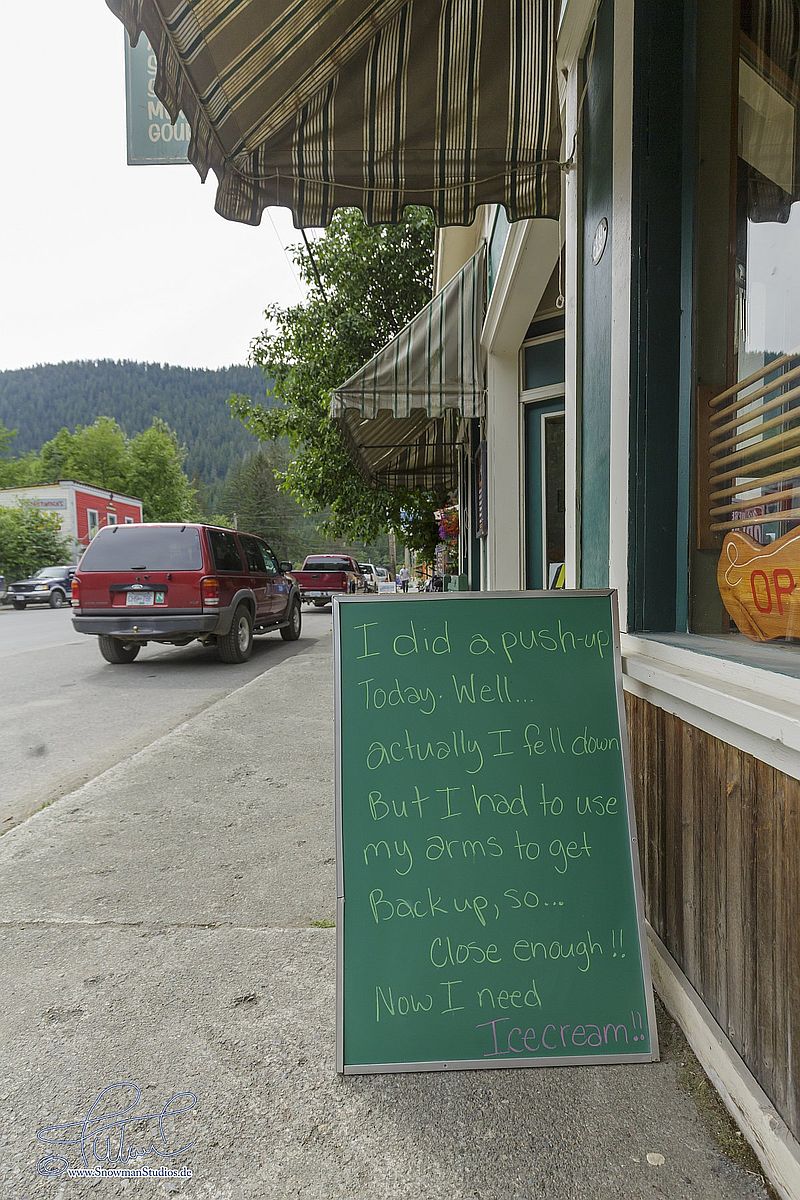 GOU
I did a push-up
Today. Well...
actually I fell down
But I had to use
my arms to get
Back up, so...
Close enough!!
Now I need
Icecream!!
OP
© www.SnowmanStudios.de